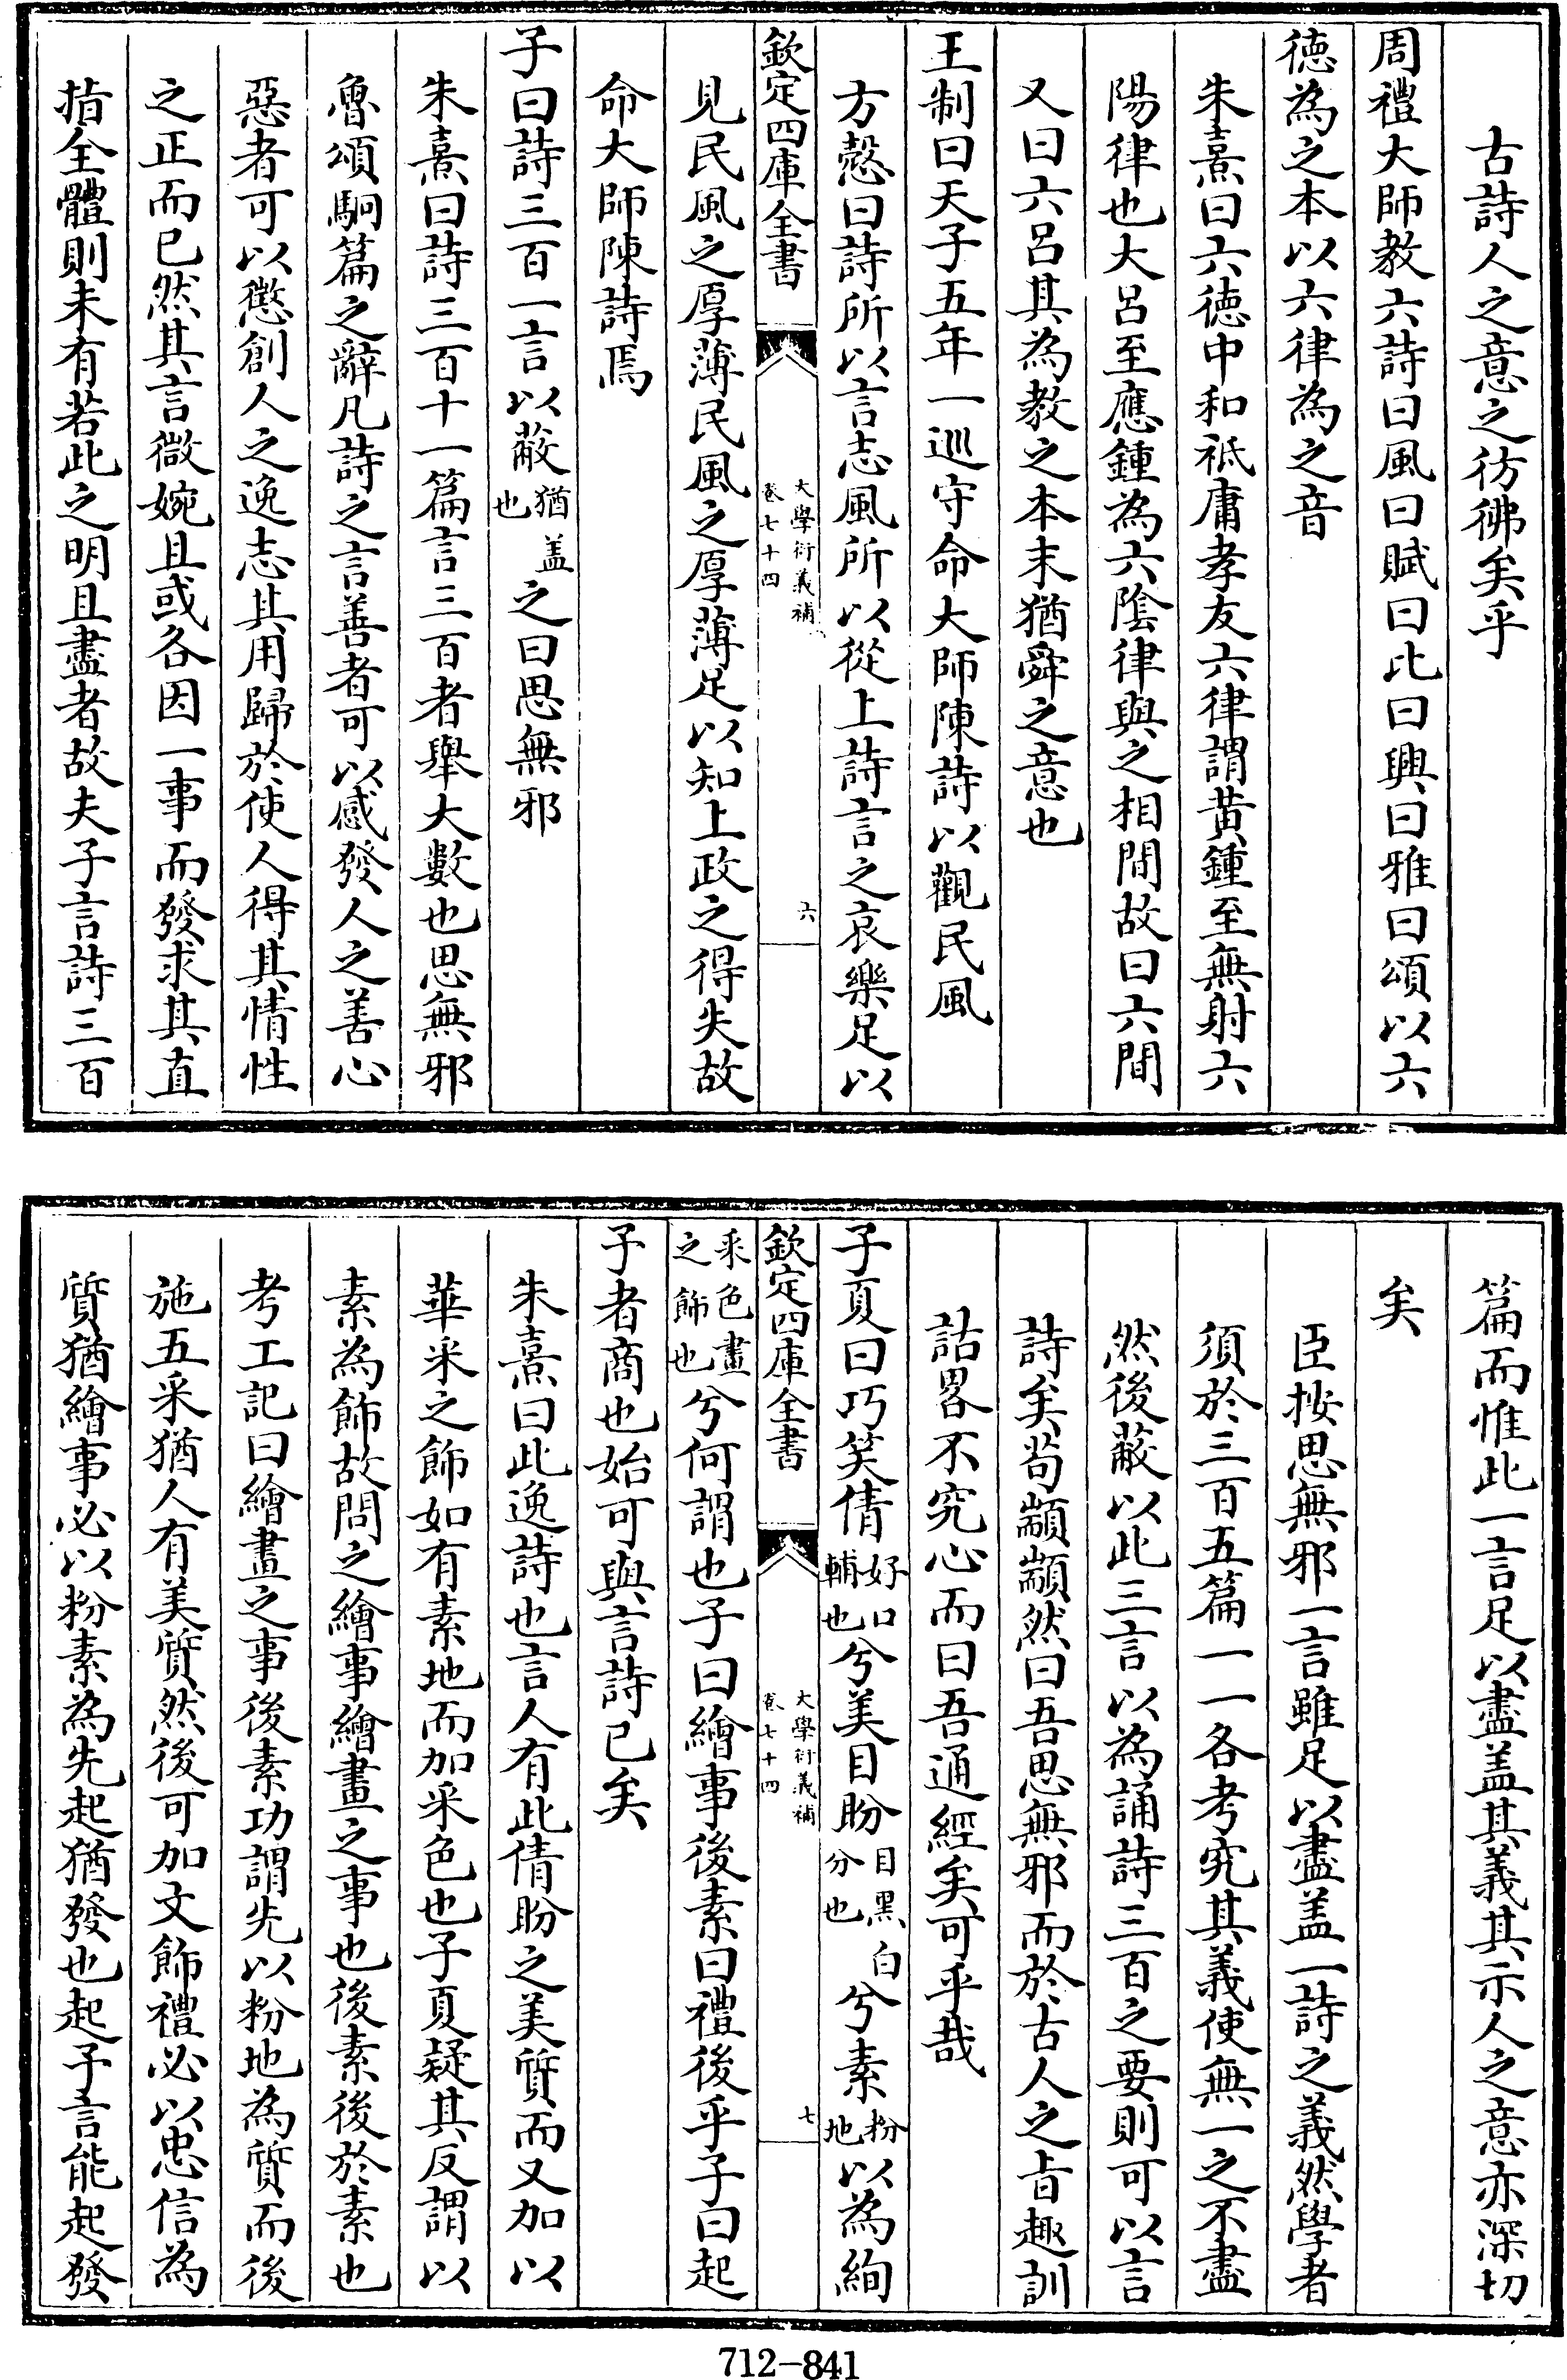 古詩人之意之彷彿矣乎
周禮大師教六詩曰風曰賦曰比曰興曰雅曰頌以六
德為之本以六律為之音
朱熹曰六德中和祗庸孝友六律謂黃鍾至無射六
陽律也大呂至應鍾為六陰律與之相間故曰六間
又曰六呂其為教之本末猶舜之意也
王制曰天子五年一巡守命大師陳詩以觀民風
方慤曰詩所以言志風所以從上詩言之哀樂足以
欽定四庫全書
大學衍義補
卷七十四
六
見民風之厚薄民風之厚薄足以知上政之得失故
命大師陳詩焉
子曰詩三百一言以蔽猶盖也之曰思無邪
朱熹曰詩三百十一篇言三百者舉大數也思無邪
魯頌駉篇之辭凡詩之言善者可以感發人之善心
惡者可以懲創人之逸志其用歸於使人得其情性
之正而已然其言微婉且或各因一事而發求其直
指全體則未有若此之明且盡者故夫子言詩三百
篇而惟此一言足以盡盖其義其示人之意亦深切
矣
臣按思無邪一言雖足以盡盖一詩之義然學者
須於三百五篇一一各考究其義使無一之不盡
然後蔽以此三言以為誦詩三百之要則可以言
詩矣茍顓顓然曰吾思無邪而於古人之旨趣訓
詁畧不究心而曰吾通經矣可乎哉
子夏曰巧笑倩好口輔也兮美目盼目黑白分也兮素粉地以為絢
欽定四庫全書
大學衍義補
卷七十四
七
采色畫之飾也兮何謂也子曰繪事後素曰禮後乎子曰起
予者商也始可與言詩已矣
朱熹曰此逸詩也言人有此倩盼之美質而又加以
華采之飾如有素地而加采色也子夏疑其反謂以
素為飾故問之繪事繪畫之事也後素後於素也
考工記曰繪畫之事後素功謂先以粉地為質而後
施五采猶人有美質然後可加文飾禮必以忠信為
質猶繪事必以粉素為先起猶發也起予言能起發
712-841